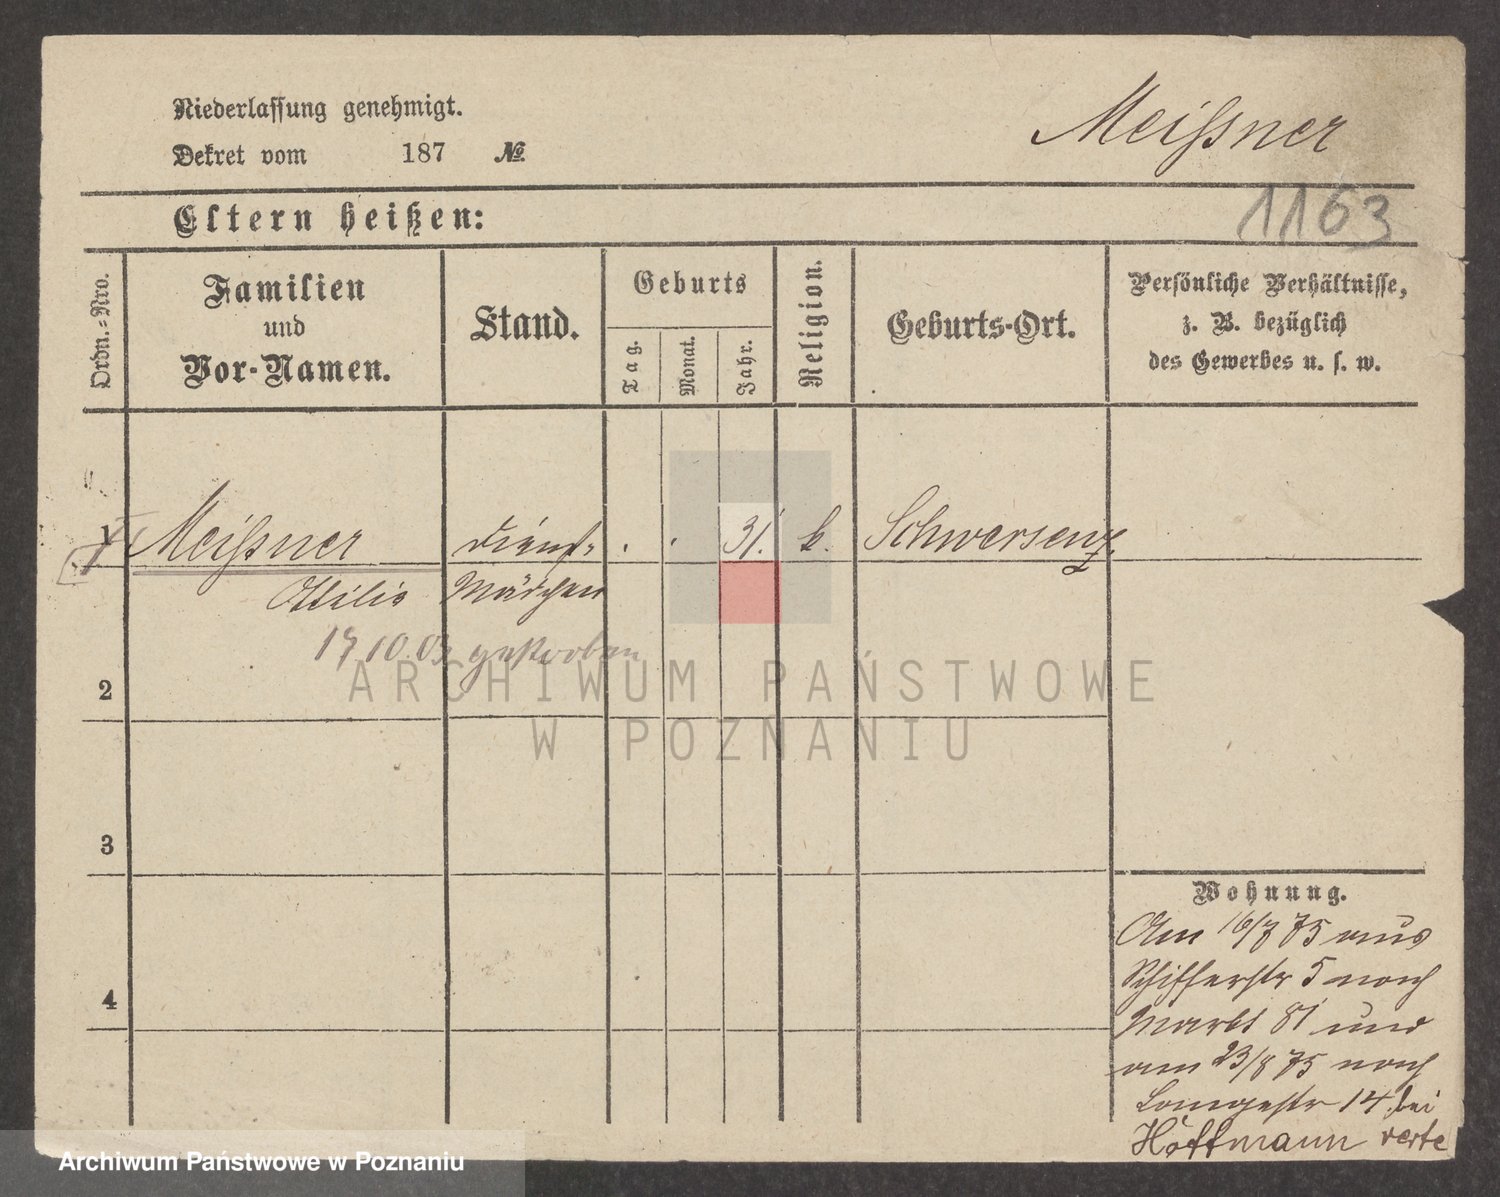 Niederlassung genehmigt.
Dekret vom 187 №
Meißner
1163
Eltern heißen:
Ordn.-Nro.
Familien
und
Vor-Namen.
Stand.
Geburts
Tag.
Monat.
Jahr.
Religion.
Geburts-Ort.
Persönliche Verhältnisse,
z. B. bezüglich
des Gewerbes u. s. w.
1 Meißner Dienst- 31. k. Schwersenz
Ottilie Mädchen
17 10.03 gestorben
2
3
4
Wohnung.
Am 16/7 75 aus
Schifferstr 5 nach
Markt 81 und
am 23/8 75 nach
Langestr 14 bei
Hoffmann verte
ARCHIWUM PAŃSTWOWE
W POZNANIU
Archiwum Państwowe w Poznaniu